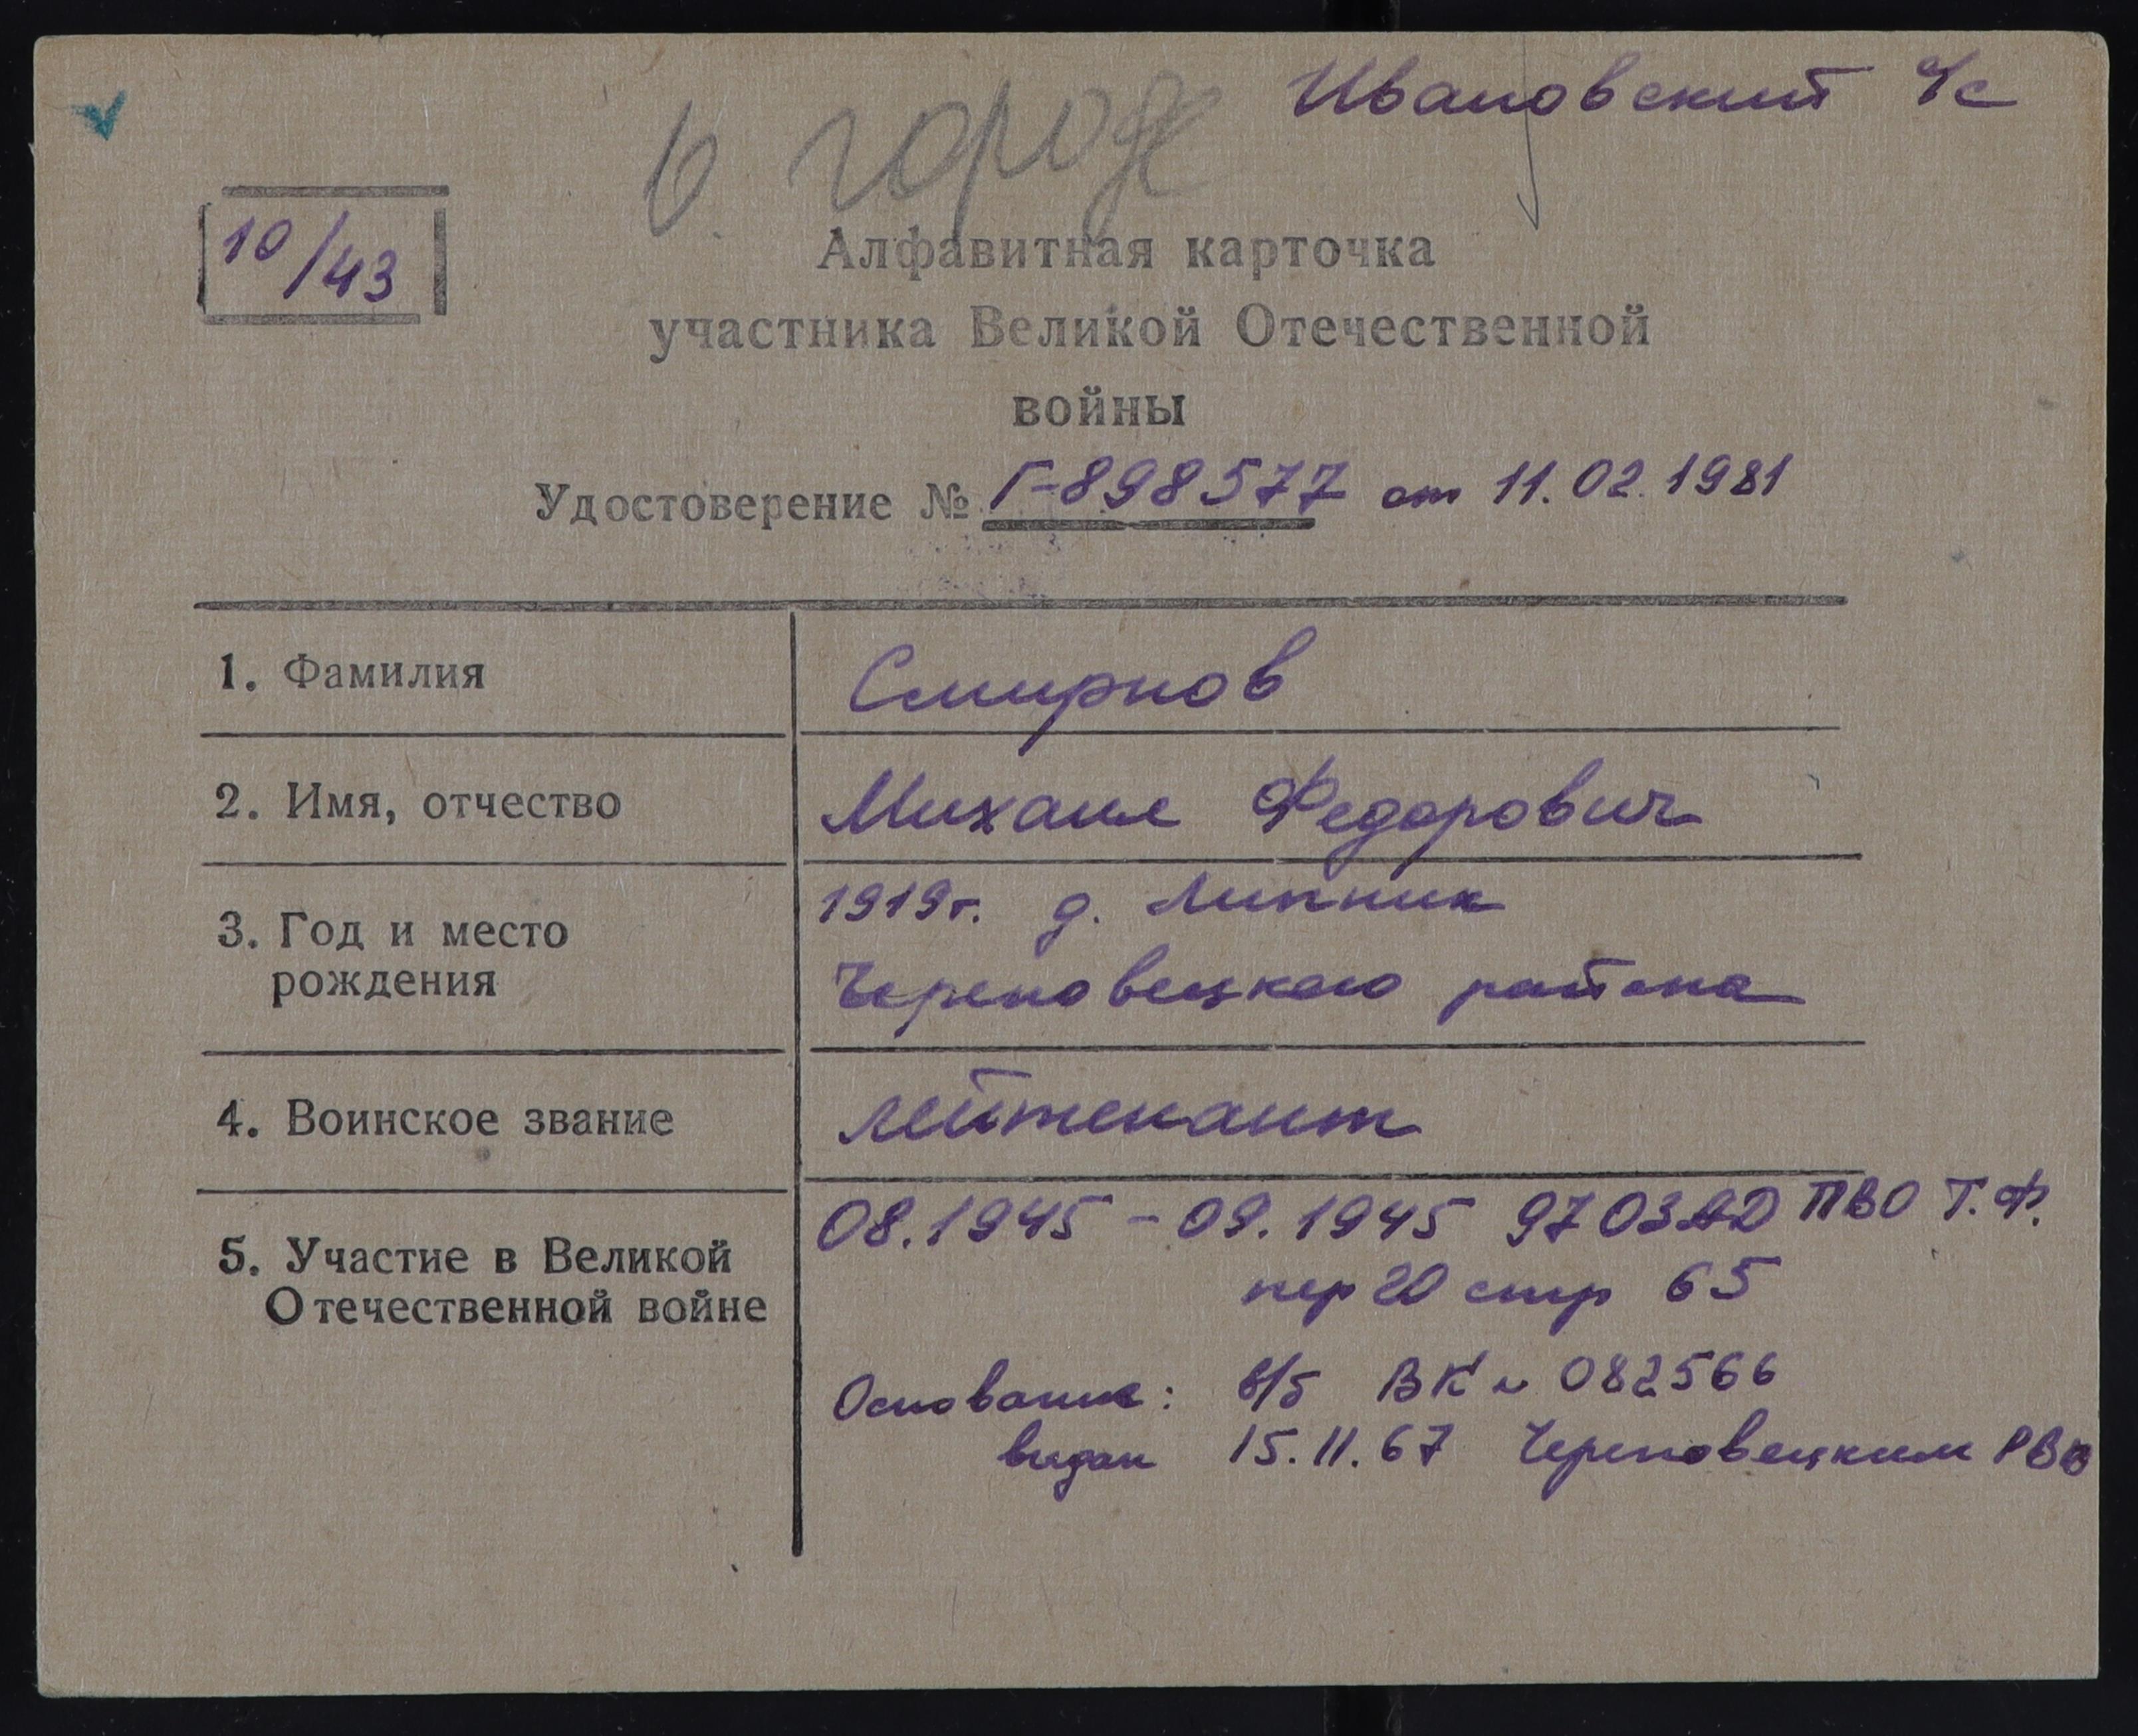 Ивановский с/с
в городе
10/43
Алфавитная карточка
участника Великой Отечественной
войны
Удостоверение № Г-898577 от 11.02.1981
1. Фамилия
Смирнов
2. Имя, отчество
Михаил Федорович
3. Год и место
рождения
1919г. д. Липник
Череповецкого района
4. Воинское звание
лейтенант
5. Участие в Великой
Отечественной войне
08.1945 - 09.1945 97 ОЗАД ПВО Т.Ф.
пер 20 стр 65
Основание: в/б ВК № 082566
выдан 15.11.67 Череповецким РВК